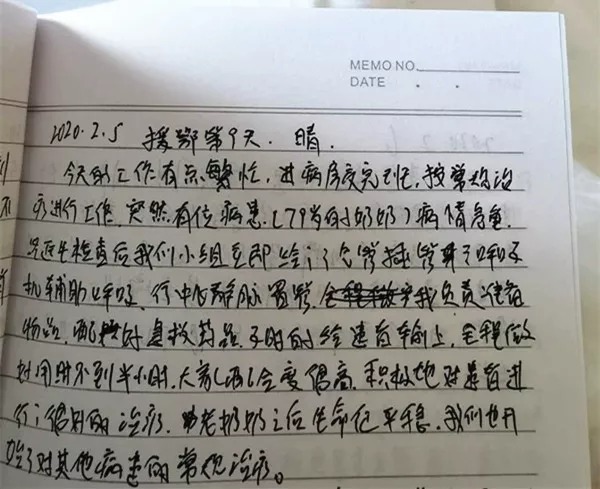 MEMO NO.
DATE . .
2020.2.5 援鄂第9天. 晴.
今天的工作有点繁忙, 进病房交完班, 按常规治
疗进行工作. 突然有位病患(79岁的奶奶)病情危重.
医生检查后我们小组立即给予气管插管并予呼吸
机辅助呼吸. 行中心静脉置管. 我负责准备
物品, 配对急救药品, 及时的给患者输上, 全程做
到用时不到半小时. 大家配合度很高. 积极地对患者进
行了很好的治疗. 老奶奶之后生命征平稳. 我们也开
始了对其他病患的常规治疗。